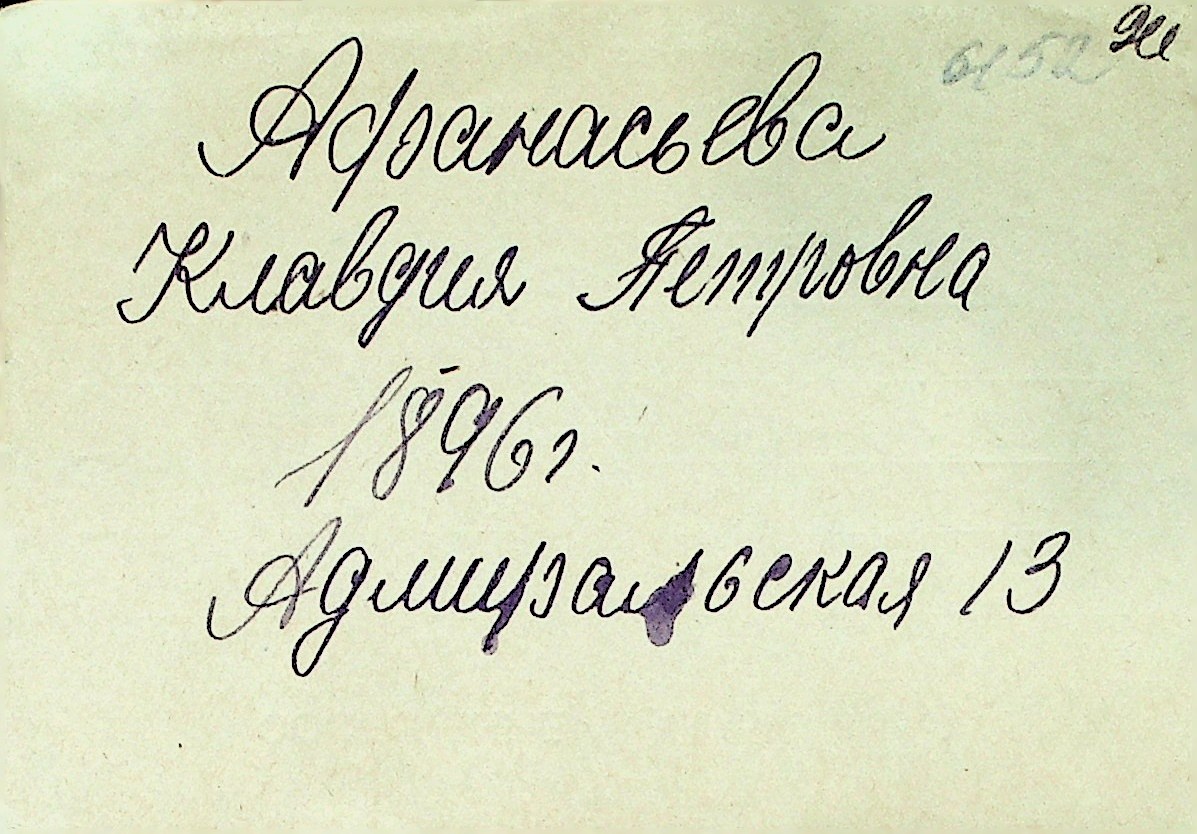 Афанасьева
Клавдия Петровна
1896 г.
Адмиральская 13